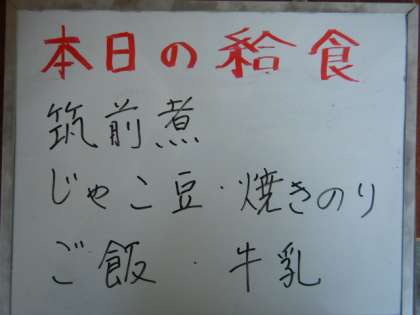 本日の給食
筑前煮
じゃこ豆・焼きのり
ご飯・牛乳